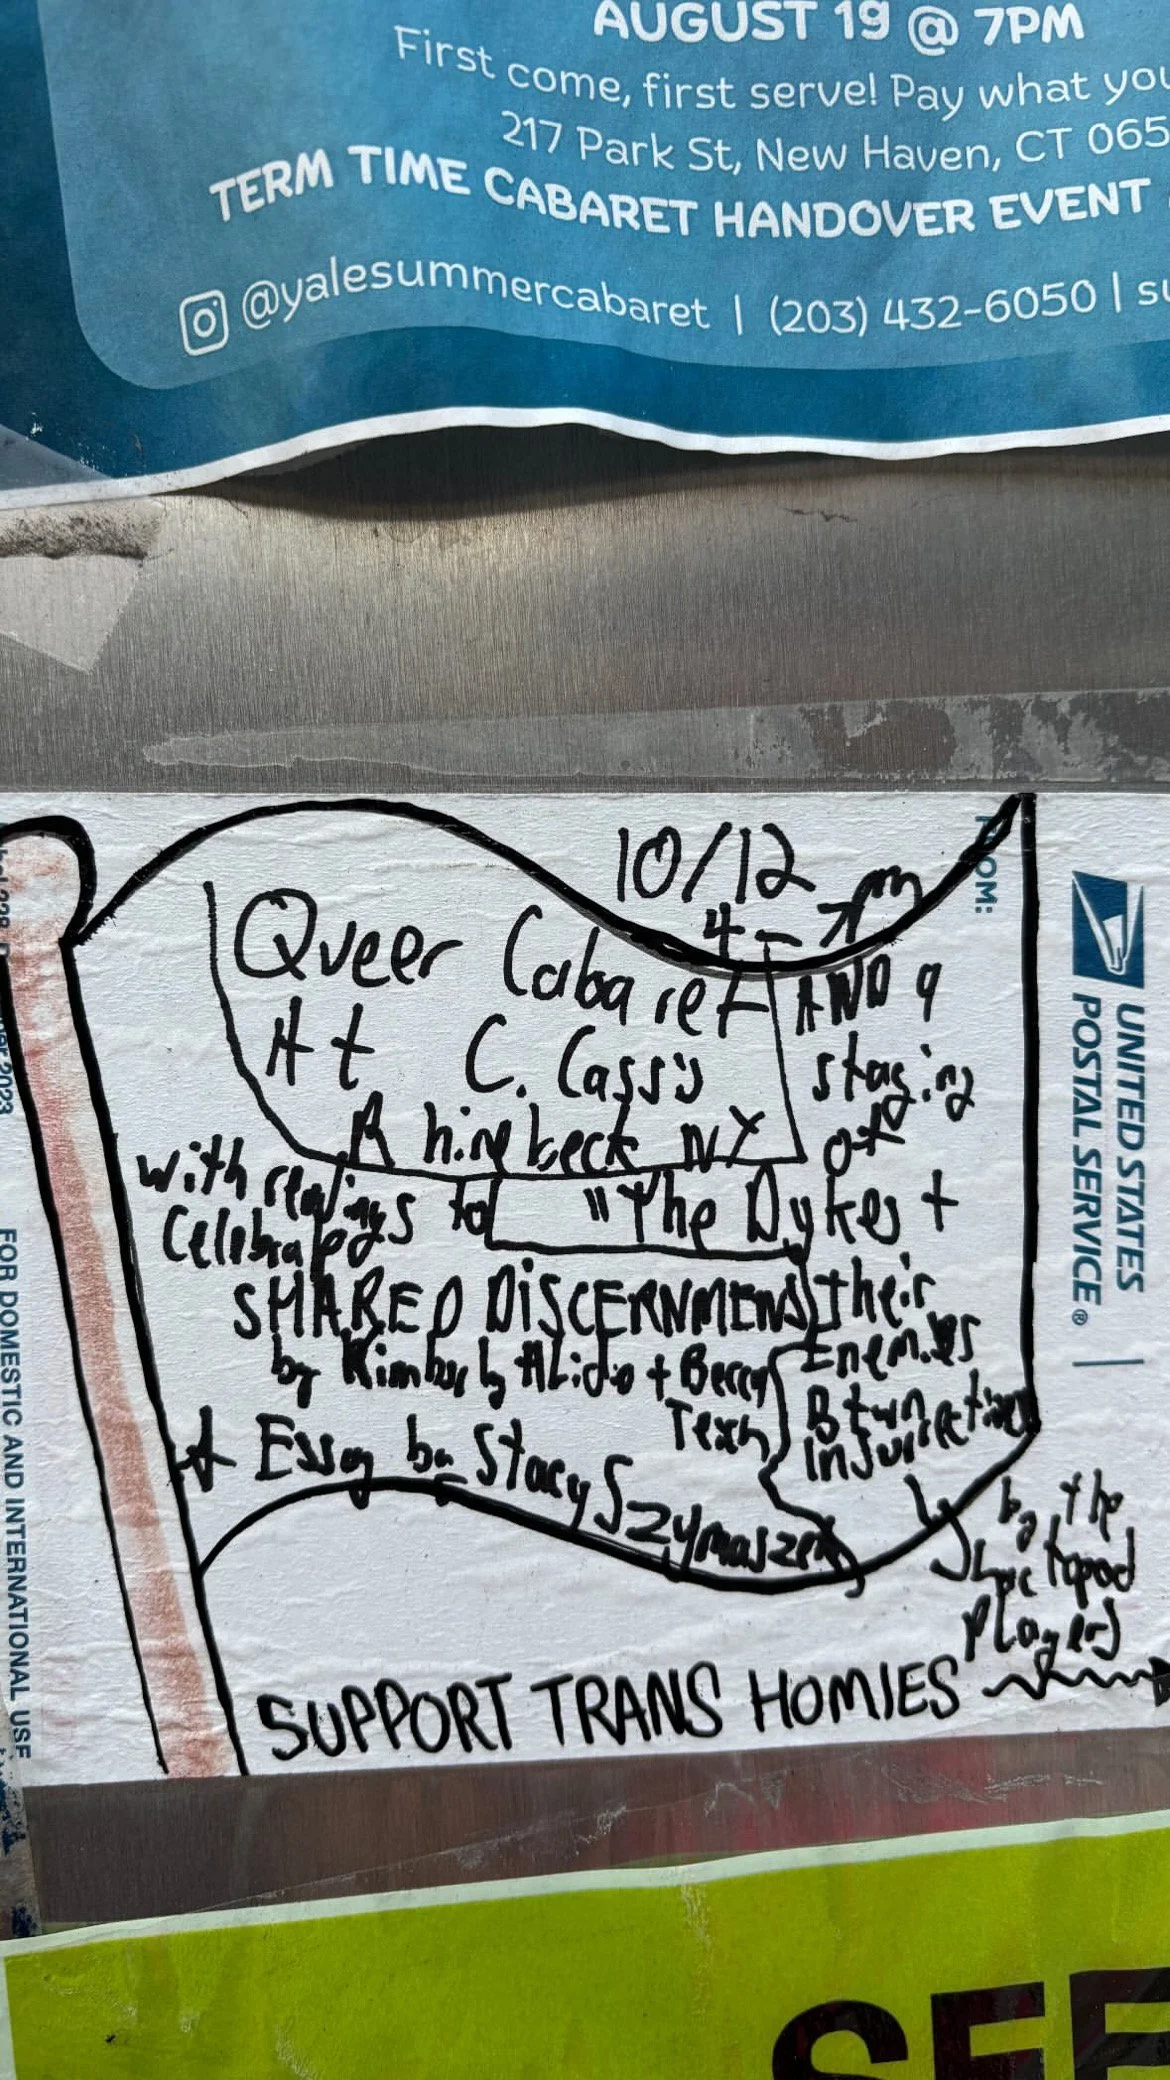 AUGUST 19 @ 7PM
First come, first serve! Pay what you
217 Park St, New Haven, CT 065
TERM TIME CABARET HANDOVER EVENT
@yalesummercabaret | (203) 432-6050 | su
10/12
4-7pm
Queer Cabaret
At C. Cass's
Rhinebeck NY
with readings to
Celebrate
SHARED DISCERNMENTS
by Kimberly Alidio +
Text
+ Essay by Stacy Szymaszek
AND a
staging
of
"The Dykes +
their
Enemies
Btwn
Insurrections
by the
players
SUPPORT TRANS HOMIES
FROM:
UNITED STATES
POSTAL SERVICE®
FOR DOMESTIC AND INTERNATIONAL USE
2023
SEE